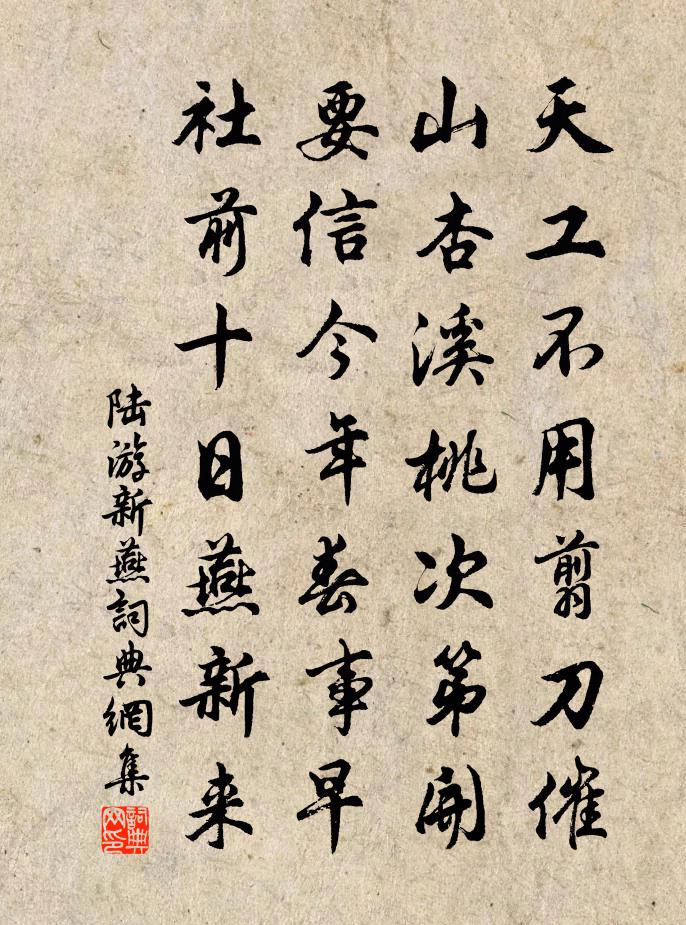 天工不用翦刀催
山杏溪桃次第開
要信今年春事早
社前十日燕新来
陆游新燕詞典網集
詞典網印